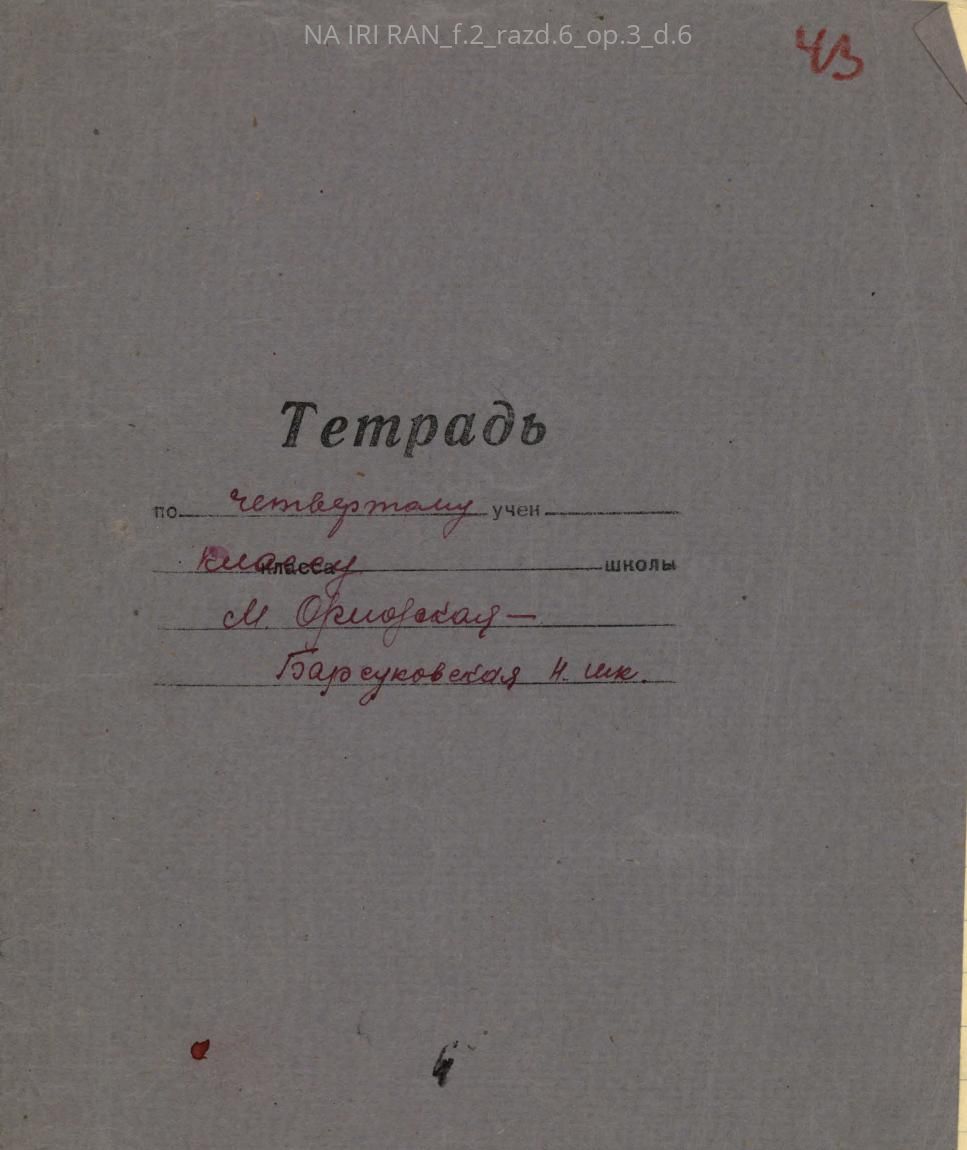 NA IRI RAN_f.2_razd.6_op.3_d.6
43
Тетрадь
по четвертому учен
классу класса школы
М. Орловская —
Барсуковская н. шк.
4